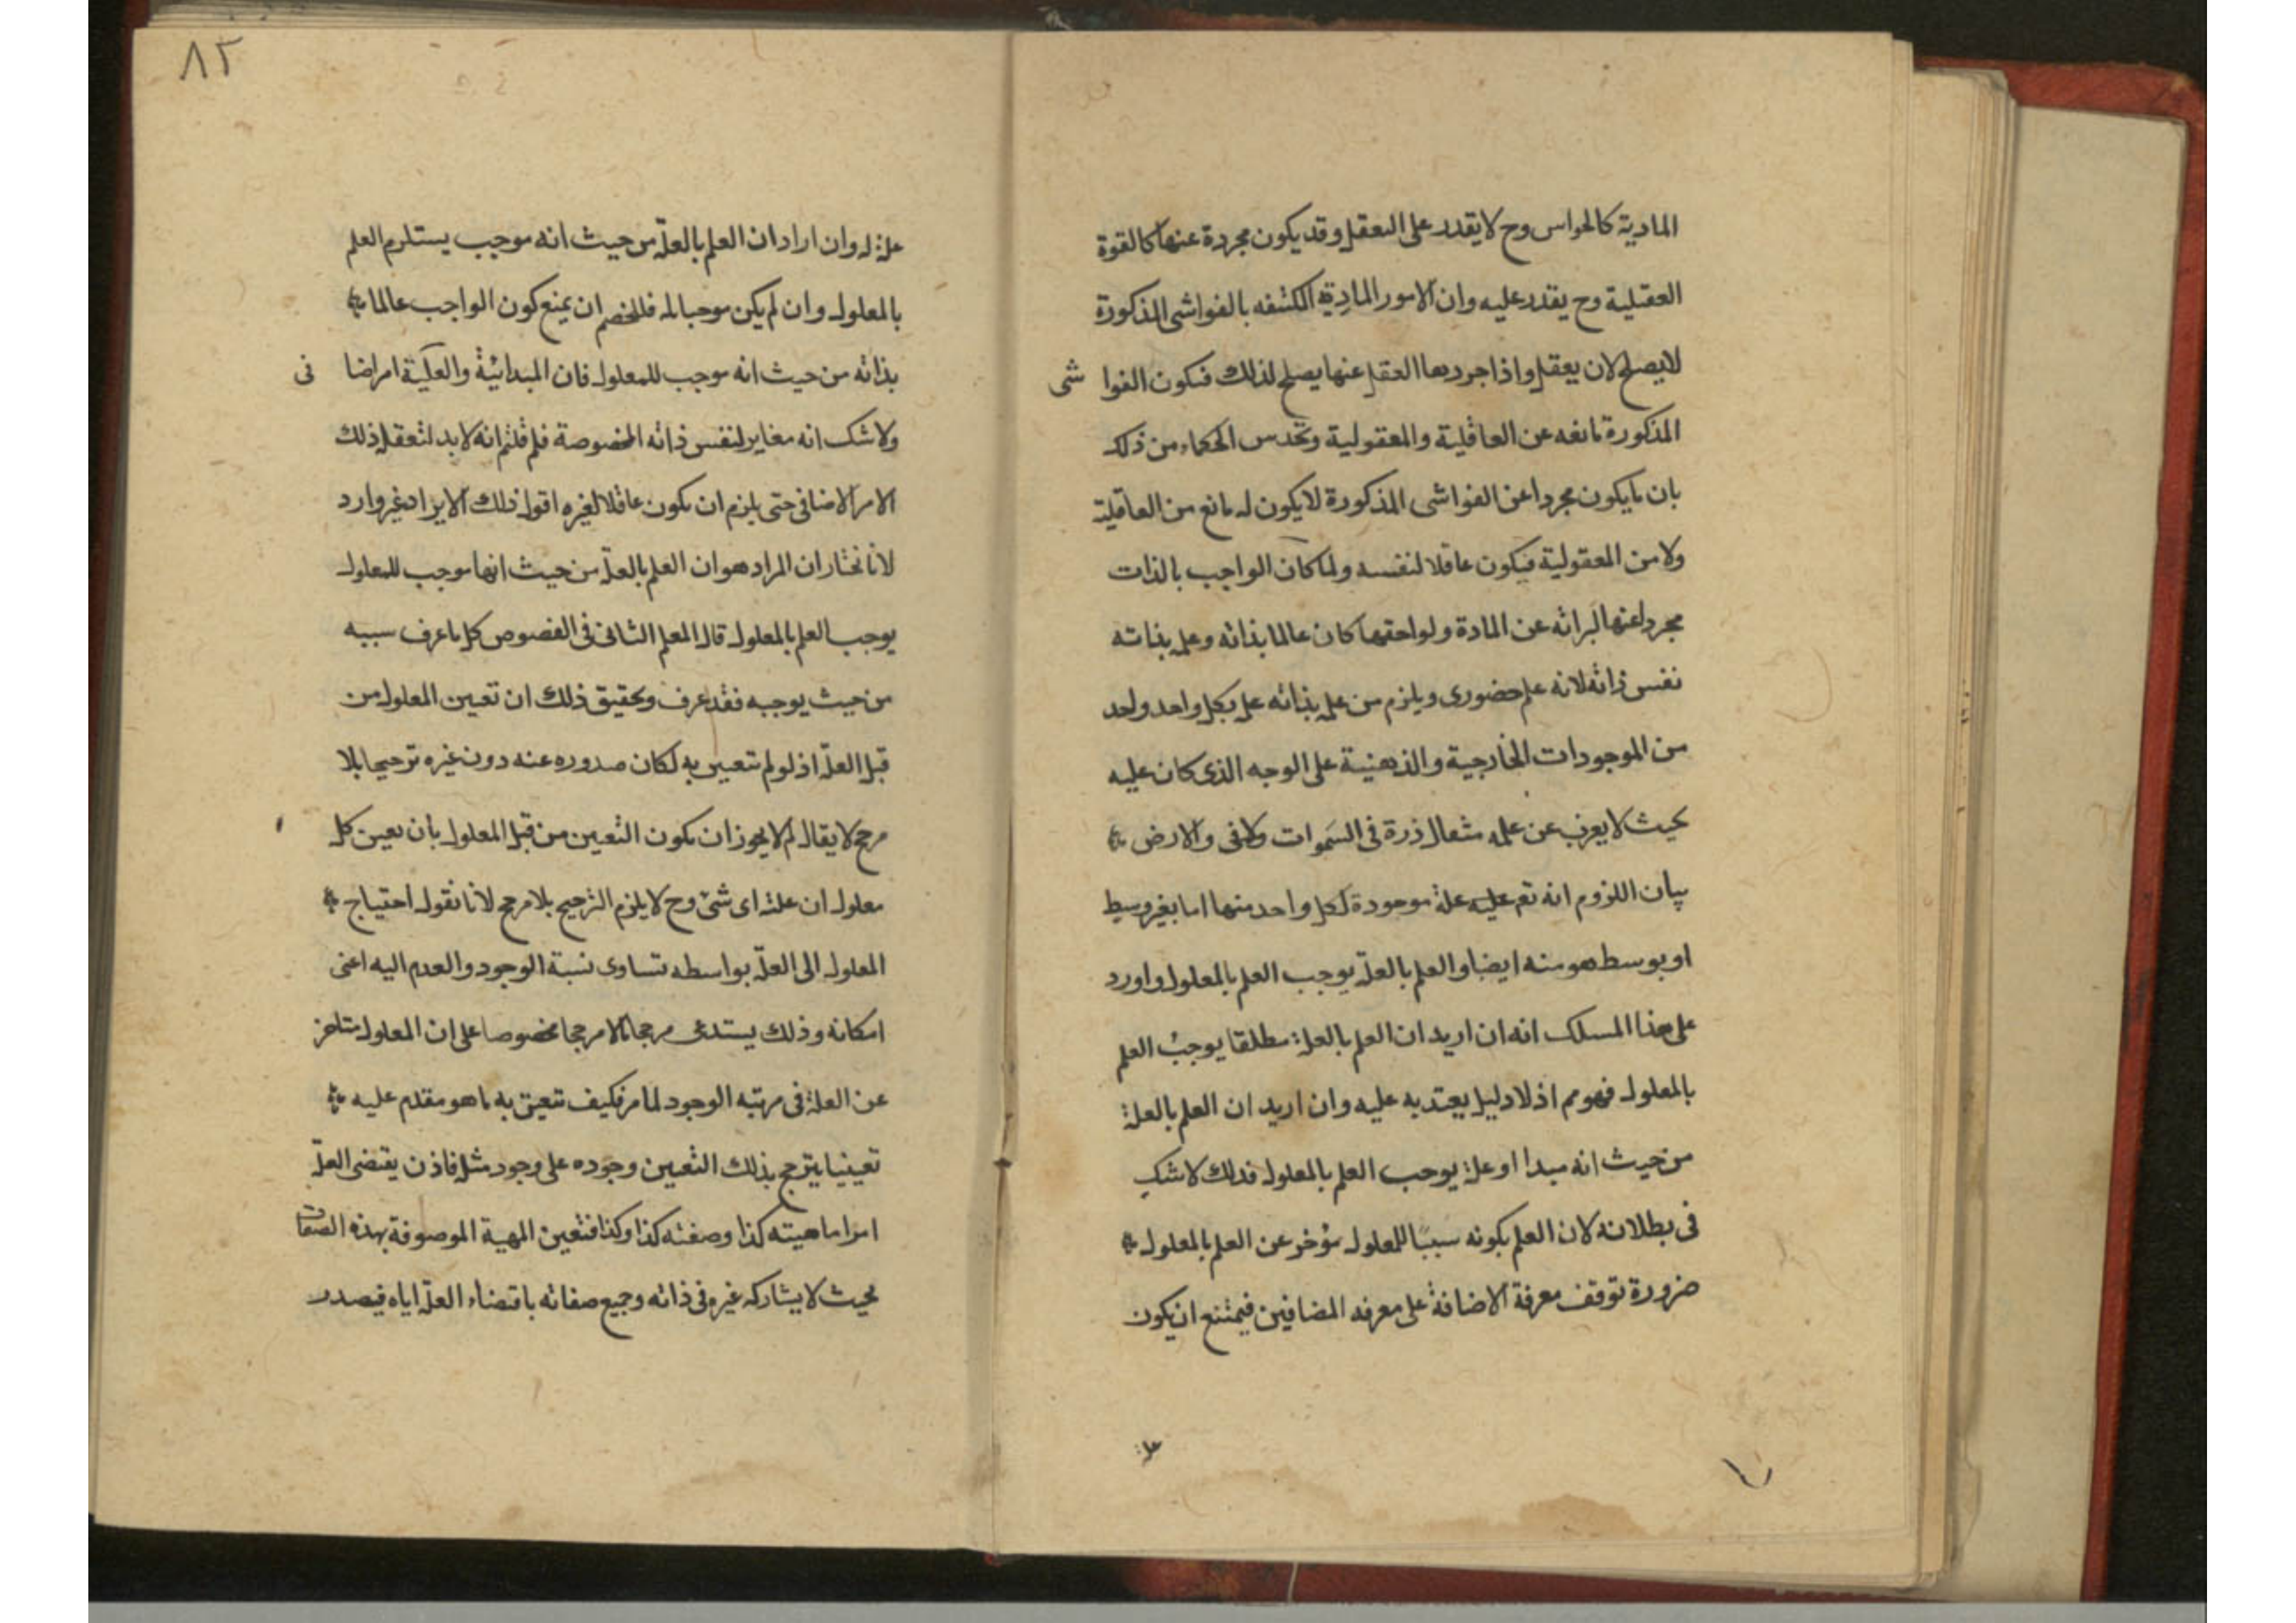 المادية كالحواس وح لا يقدر على التعقل وقد يكون مجردة عنها كالقوة
العقلية وح يقدر عليه وان الامور المادية المكتنفه بالغواشى المذكورة
لا يصلح لان يعقل واذا جردها العقل عنها يصلح لذلك فيكون الغوا شى
المذكورة مانعه عن العاقلية والمعقولية وتحدس الحكماء من ذلك
بان ما يكون مجردا عن الغواشى المذكورة لا يكون له مانع من العاقلية
ولا من المعقولية فيكون عاقلا لنفسه ولما كان الواجب بالذات
مجردا عنها لبرائه عن المادة ولواحقها كان عالما بذاته وعلمه بذاته
نفس ذاته لانه علم حضورى ويلزم من علمه بذاته علمه بكل واحد واحد
من الموجودات الخارجية والذهنية على الوجه الذى كان عليه
بحيث لا يعزب عن علمه مثقال ذرة فى السموات ولا فى والارض
بيان اللزوم انه تع علة موجودة لكل واحد منها اما بغير وسيط
او بوسط هو منه ايضا والعلم بالعلة يوجب العلم بالمعلول واورد
على هذا المسلك انه ان اريد ان العلم بالعلة مطلقا يوجب العلم
بالمعلول فهو مم اذ لا دليل يعتد به عليه وان اريد ان العلم بالعلة
من حيث انه مبدا او علة يوجب العلم بالمعلول فذلك لا شك
فى بطلانه لان العلم بكونه سببا للمعلول مؤخر عن العلم بالمعلول
ضرورة توقف معرفة الاضافة على معرفه المضافين فيمتنع ان يكون
علة
٨٢
علة له وان اراد ان العلم بالعلة من حيث انه موجب يستلزم العلم
بالمعلول وان لم يكن موجبا له فللخصم ان يمنع كون الواجب عالما
بذاته من حيث انه موجب للمعلول فان المبدائية والعلية امر اضا فى
ولا شك انه مغاير لنفس ذاته المخصوصة فلم قلتم انه لا بد لتعقل ذلك
الامر الاضافى حتى يلزم ان يكون عاقلا لغيره اقول ذلك الايراد غير وارد
لانا نختار ان المراد هو ان العلم بالعلة من حيث انها موجب للمعلول
يوجب العلم بالمعلول قال المعلم الثانى فى الفصوص كل ما عرف سببه
من حيث يوجبه فقد عرف وتحقيق ذلك ان تعين المعلول من
قبل العلة اذ لو لم تتعين به لكان صدوره عنه دون غيره ترجيحا بلا
مرجح لا يقال لم لا يجوز ان يكون التعين من قبل المعلول بان يعين كل
معلول ان علته اى شئ وح لا يلزم الترجيح بلا مرجح لانا نقول احتياج
المعلول الى العلة بواسطه تساوى نسبة الوجود والعدم اليه اعنى
امكانه وذلك يستدعى مرجحا ما لا مرجحا مخصوصا على ان المعلول متاخر
عن العلة فى مرتبه الوجود لما مر فكيف تتعين به ما هو مقدم عليه
تعينيا يترجح بذلك التعين وجوده على وجود مثله فاذن يقتضى العلة
امرا ماهيته كذا وصفته كذا وكذا فتعين المهية الموصوفة بهذه الصفات
بحيث لا يشاركه غيره فى ذاته وجميع صفاته باقتضاء العلة اياه فيصدر